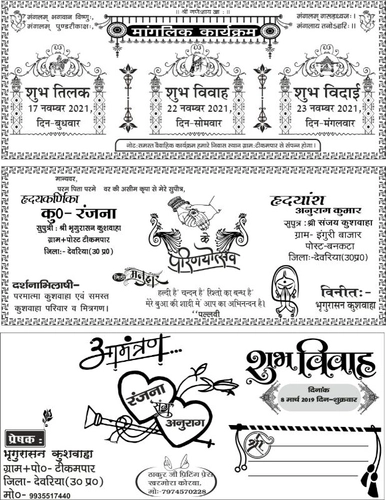 || श्री गणेशाय नमः ||
मंगलम् भगवान विष्णुः,
मंगलम् पुण्डरीकाक्षः,
मंगलम् गरुड़ध्वजः।
मंगलाय तनोऽहरिः॥
मांगलिक कार्यक्रम
शुभ तिलक
17 नवम्बर 2021,
दिन-बुधवार
शुभ विवाह
22 नवम्बर 2021,
दिन-सोमवार
शुभ विदाई
23 नवम्बर 2021,
दिन-मंगलवार
नोट:-समस्त वैवाहिक कार्यक्रम हमारे निवास स्थान ग्राम-टीकमपार से संपन्न होगा।
मान्यवर,
परम पिता परमेश्वर की असीम कृपा से मेरे सुपौत्री,
हृदयकर्णिका
कु०- रंजना
सुपुत्री : श्री भृगुरासन कुशवाहा
ग्राम+पोस्ट टीकमपार
जिला:- देवरिया(उ0प्र0)
के
परिणयोत्सव
हृदयांश
अनुराग कुमार
सुपुत्र : श्री संजय कुशवाहा
ग्राम- इंगुरी बाजार
पोस्ट-बनकटा
जिला:-देवरिया(उ0प्र0)
दर्शनाभिलाषी-
परमात्मा कुशवाहा एवं समस्त
कुशवाहा परिवार व मित्रगण।
मनुहार
हल्दी है चन्दन है रिश्तो का बन्धन है
मेरे बुआ की शादी में आप का अभिनन्दन है।
"पल्लवी
विनीतः-
भृगुरासन कुशवाहा
आमंत्रण...
रंजना
संग
अनुराग
प्रेषक :
भृगुरासन कुशवाहा
ग्राम+पो०- टीकमपार
जिला- देवरिया (उ0 प्र0)
मो०- 9935517440
ठाकुर जी प्रिंटिंग प्रेस
खरमोरा कोरबा.
मो:-7974570228
शुभ विवाह
दिनांक
8 मार्च 2019 दिन-शुक्रवार
श्री